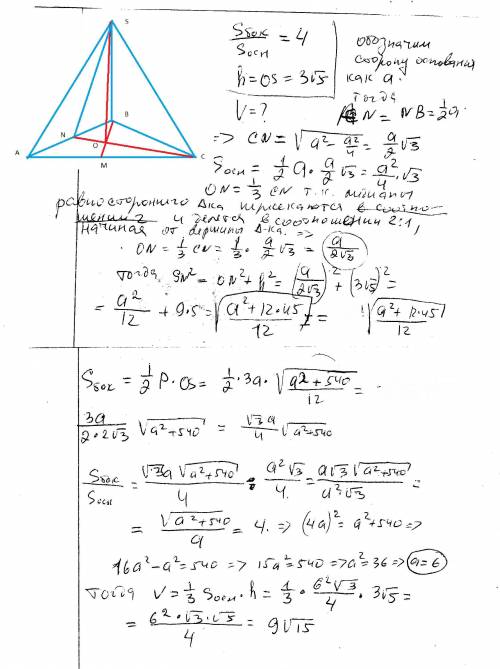 S
B
N
O
A
M
C
Sбок/Sосн = 4
h = OS = 3√5
V = ?
обозначим
сторону основания
как a.
тогда
AN = NB = 1/2 a.
=> CN = √(a² - a²/4) = a/2 √3
Sосн = 1/2 a · a/2 √3 = a²/4 · √3
ON = 1/3 CN т.к. медианы
равностороннего Δка пересекаются в соотно-
шении 2 и делятся в соотношении 2:1,
начиная от вершины Δ-ка. =>
ON = 1/3 CN = 1/3 · a/2 √3 = a/2√3
тогда SN² = ON² + h² = (a/2√3)² + (3√5)² =
= a²/12 + 9·5 = √(a² + 12·45/12) = √(a² + 12·45/12)
Sбок = 1/2 P · OS = 1/2 · 3a · √(a² + 540/12) =
3a/2·2√3 √(a² + 540) = √3 a/4 √(a² + 540)
Sбок/Sосн = √3 a √(a² + 540)/4 : a²√3/4 = a√3 √(a² + 540)/a²√3 =
= √(a² + 540)/a = 4. => (4a)² = a² + 540 =>
16a² - a² = 540 => 15a² = 540 => a² = 36 => a = 6
тогда V = 1/3 Sосн · h = 1/3 · 6²√3/4 · 3√5 =
= 6² · √3 · √5/4 = 9√15